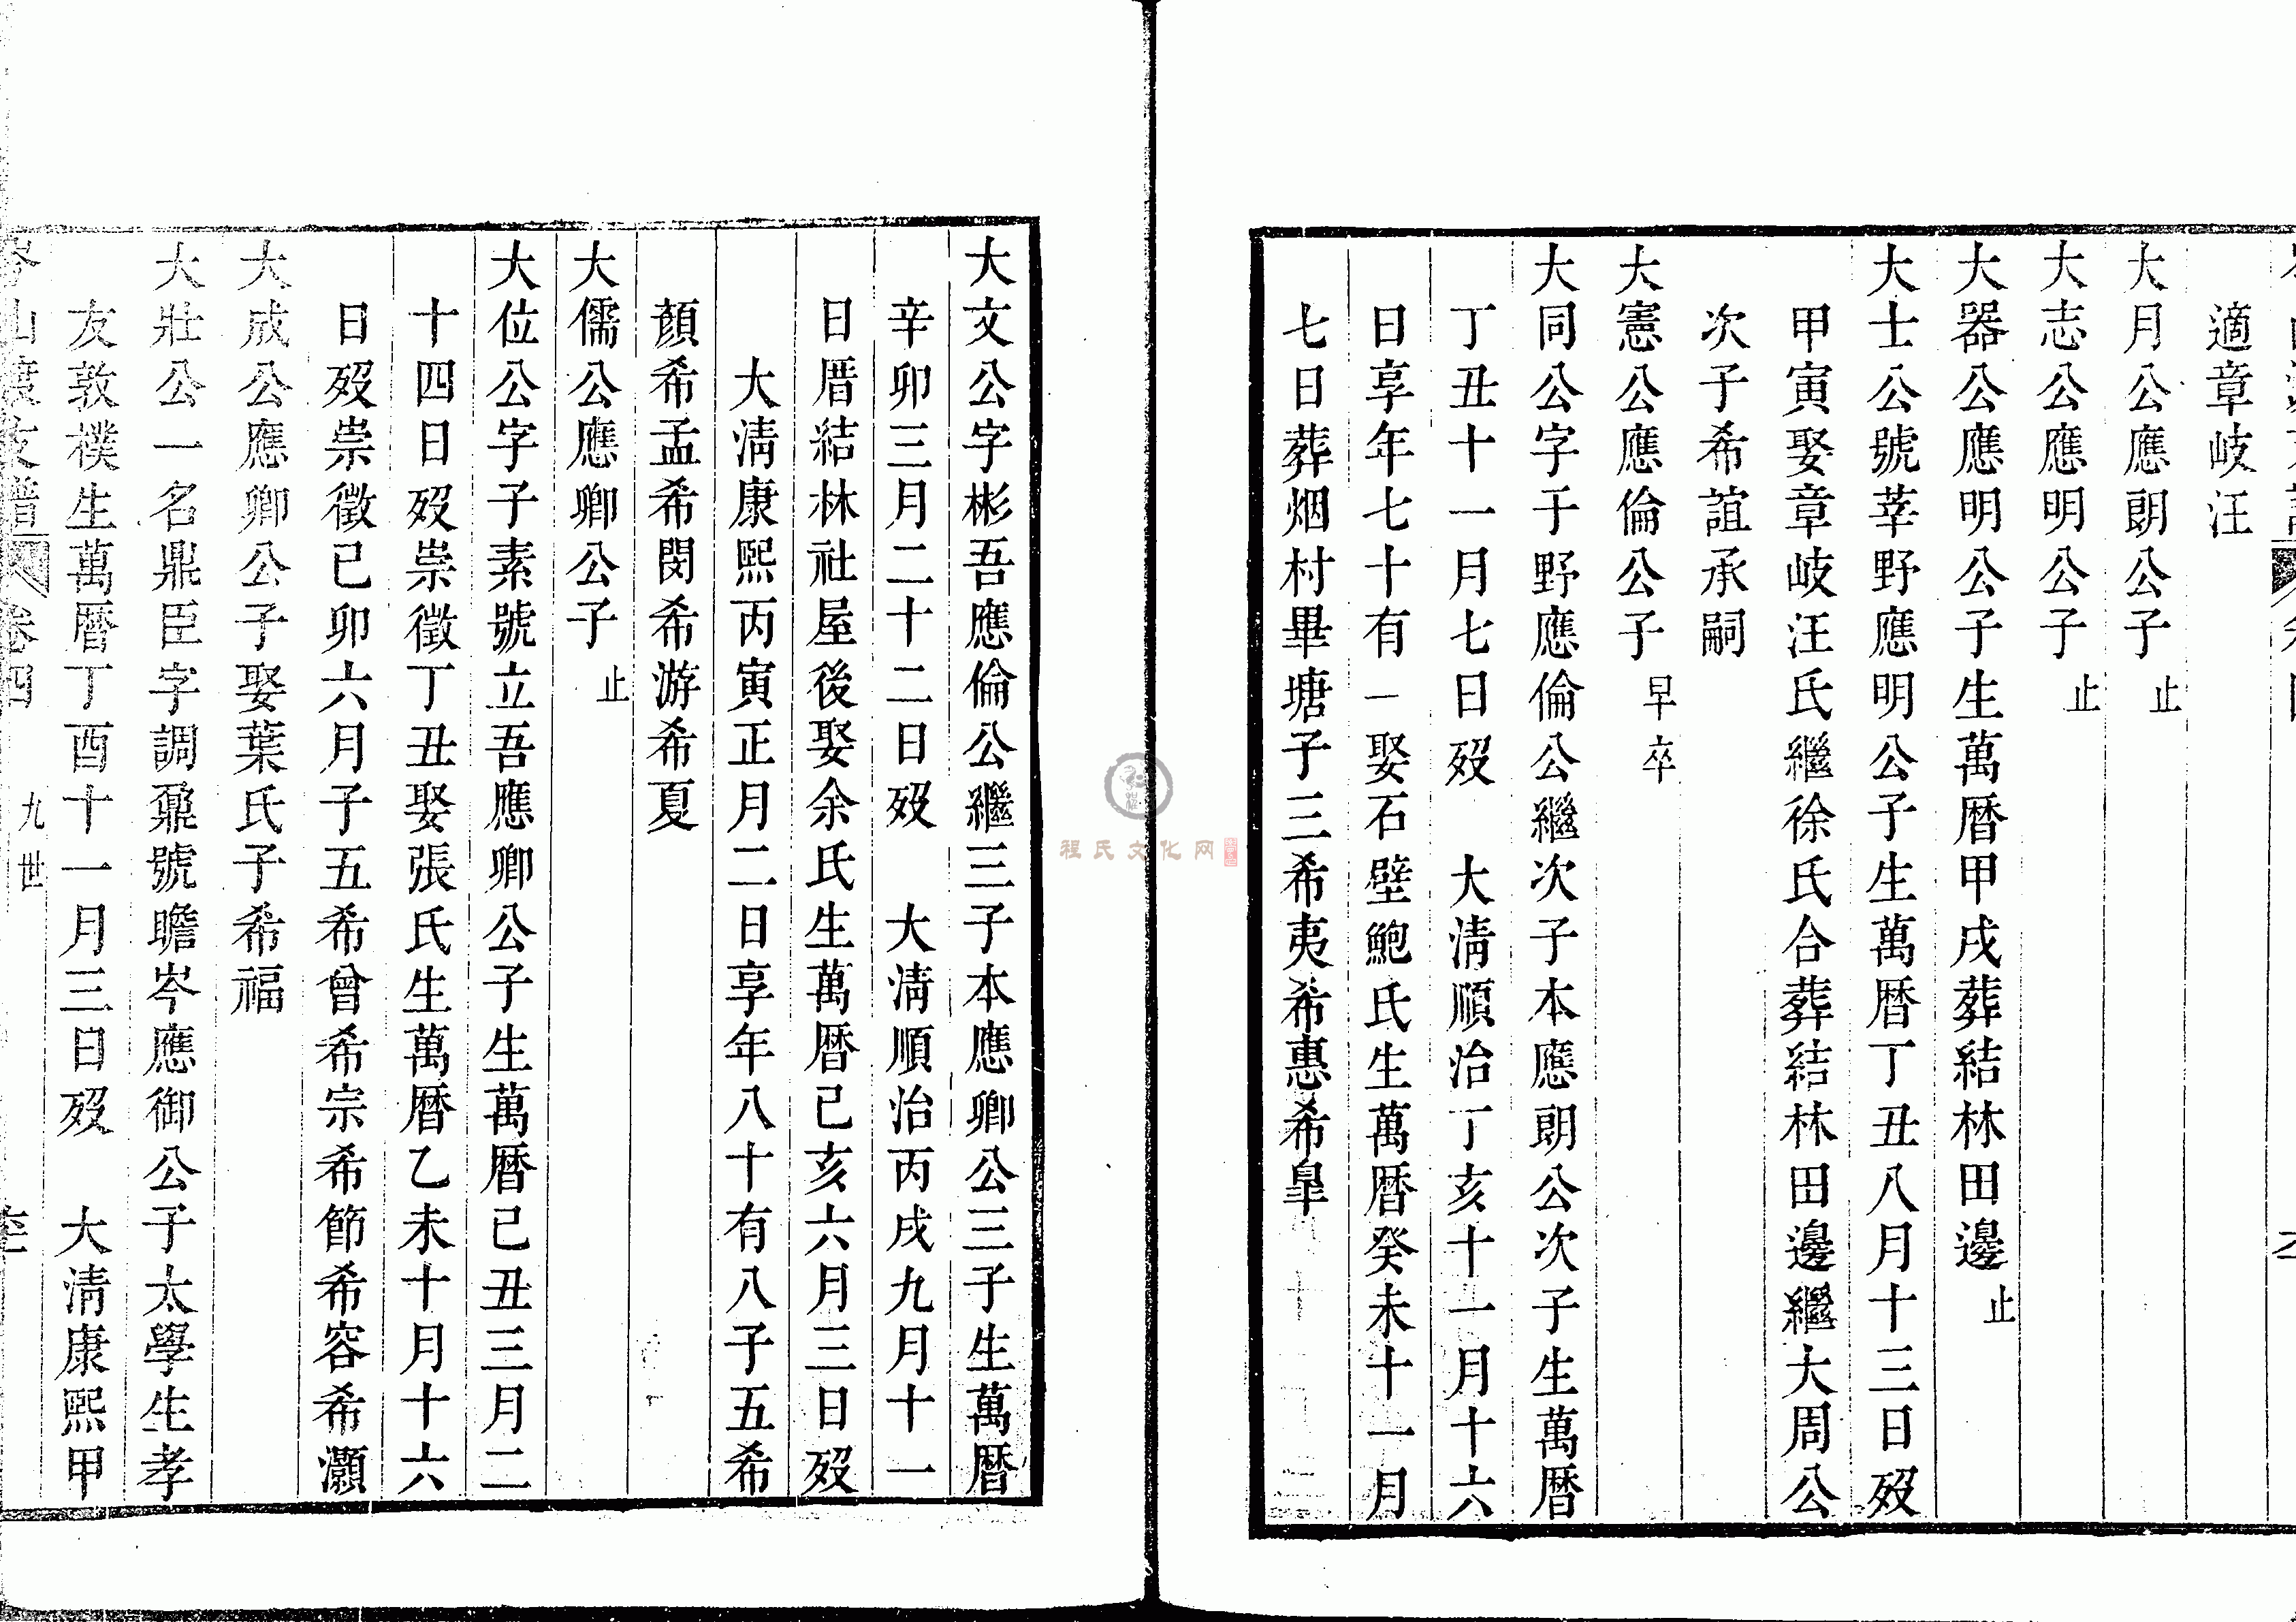 適章岐汪
大月公應朗公子止
大志公應明公子止
大器公應明公子生萬曆甲戌葬結林田邊止
大士公號莘野應明公子生萬曆丁丑八月十三日歿
甲寅娶章岐汪氏繼徐氏合葬結林田邊繼大周公
次子希誼承嗣
大憲公應倫公子早卒
大同公字于野應倫公繼次子本應朗公次子生萬曆
丁丑十一月七日歿 大清順治丁亥十一月十六
日享年七十有一娶石壁鮑氏生萬曆癸未十一月
七日葬烟村畢塘子三希夷希惠希皐
大文公字彬吾應倫公繼三子本應卿公三子生萬曆
辛卯三月二十二日歿 大清順治丙戌九月十一
日厝結林社屋後娶余氏生萬曆己亥六月三日歿
大清康熙丙寅正月二日享年八十有八子五希
顏希孟希閔希游希夏
大儒公應卿公子止
大位公字子素號立吾應卿公子生萬曆己丑三月二
十四日歿崇徵丁丑娶張氏生萬曆乙未十月十六
日歿崇徵己卯六月子五希曾希宗希節希容希灝
大成公應卿公子娶葉氏子希福
大壯公一名鼎臣字調鼐號瞻岑應御公子太學生孝
友敦樸生萬曆丁酉十一月三日歿 大清康熙甲
岑山渡支譜 卷四 九世
程氏文化网